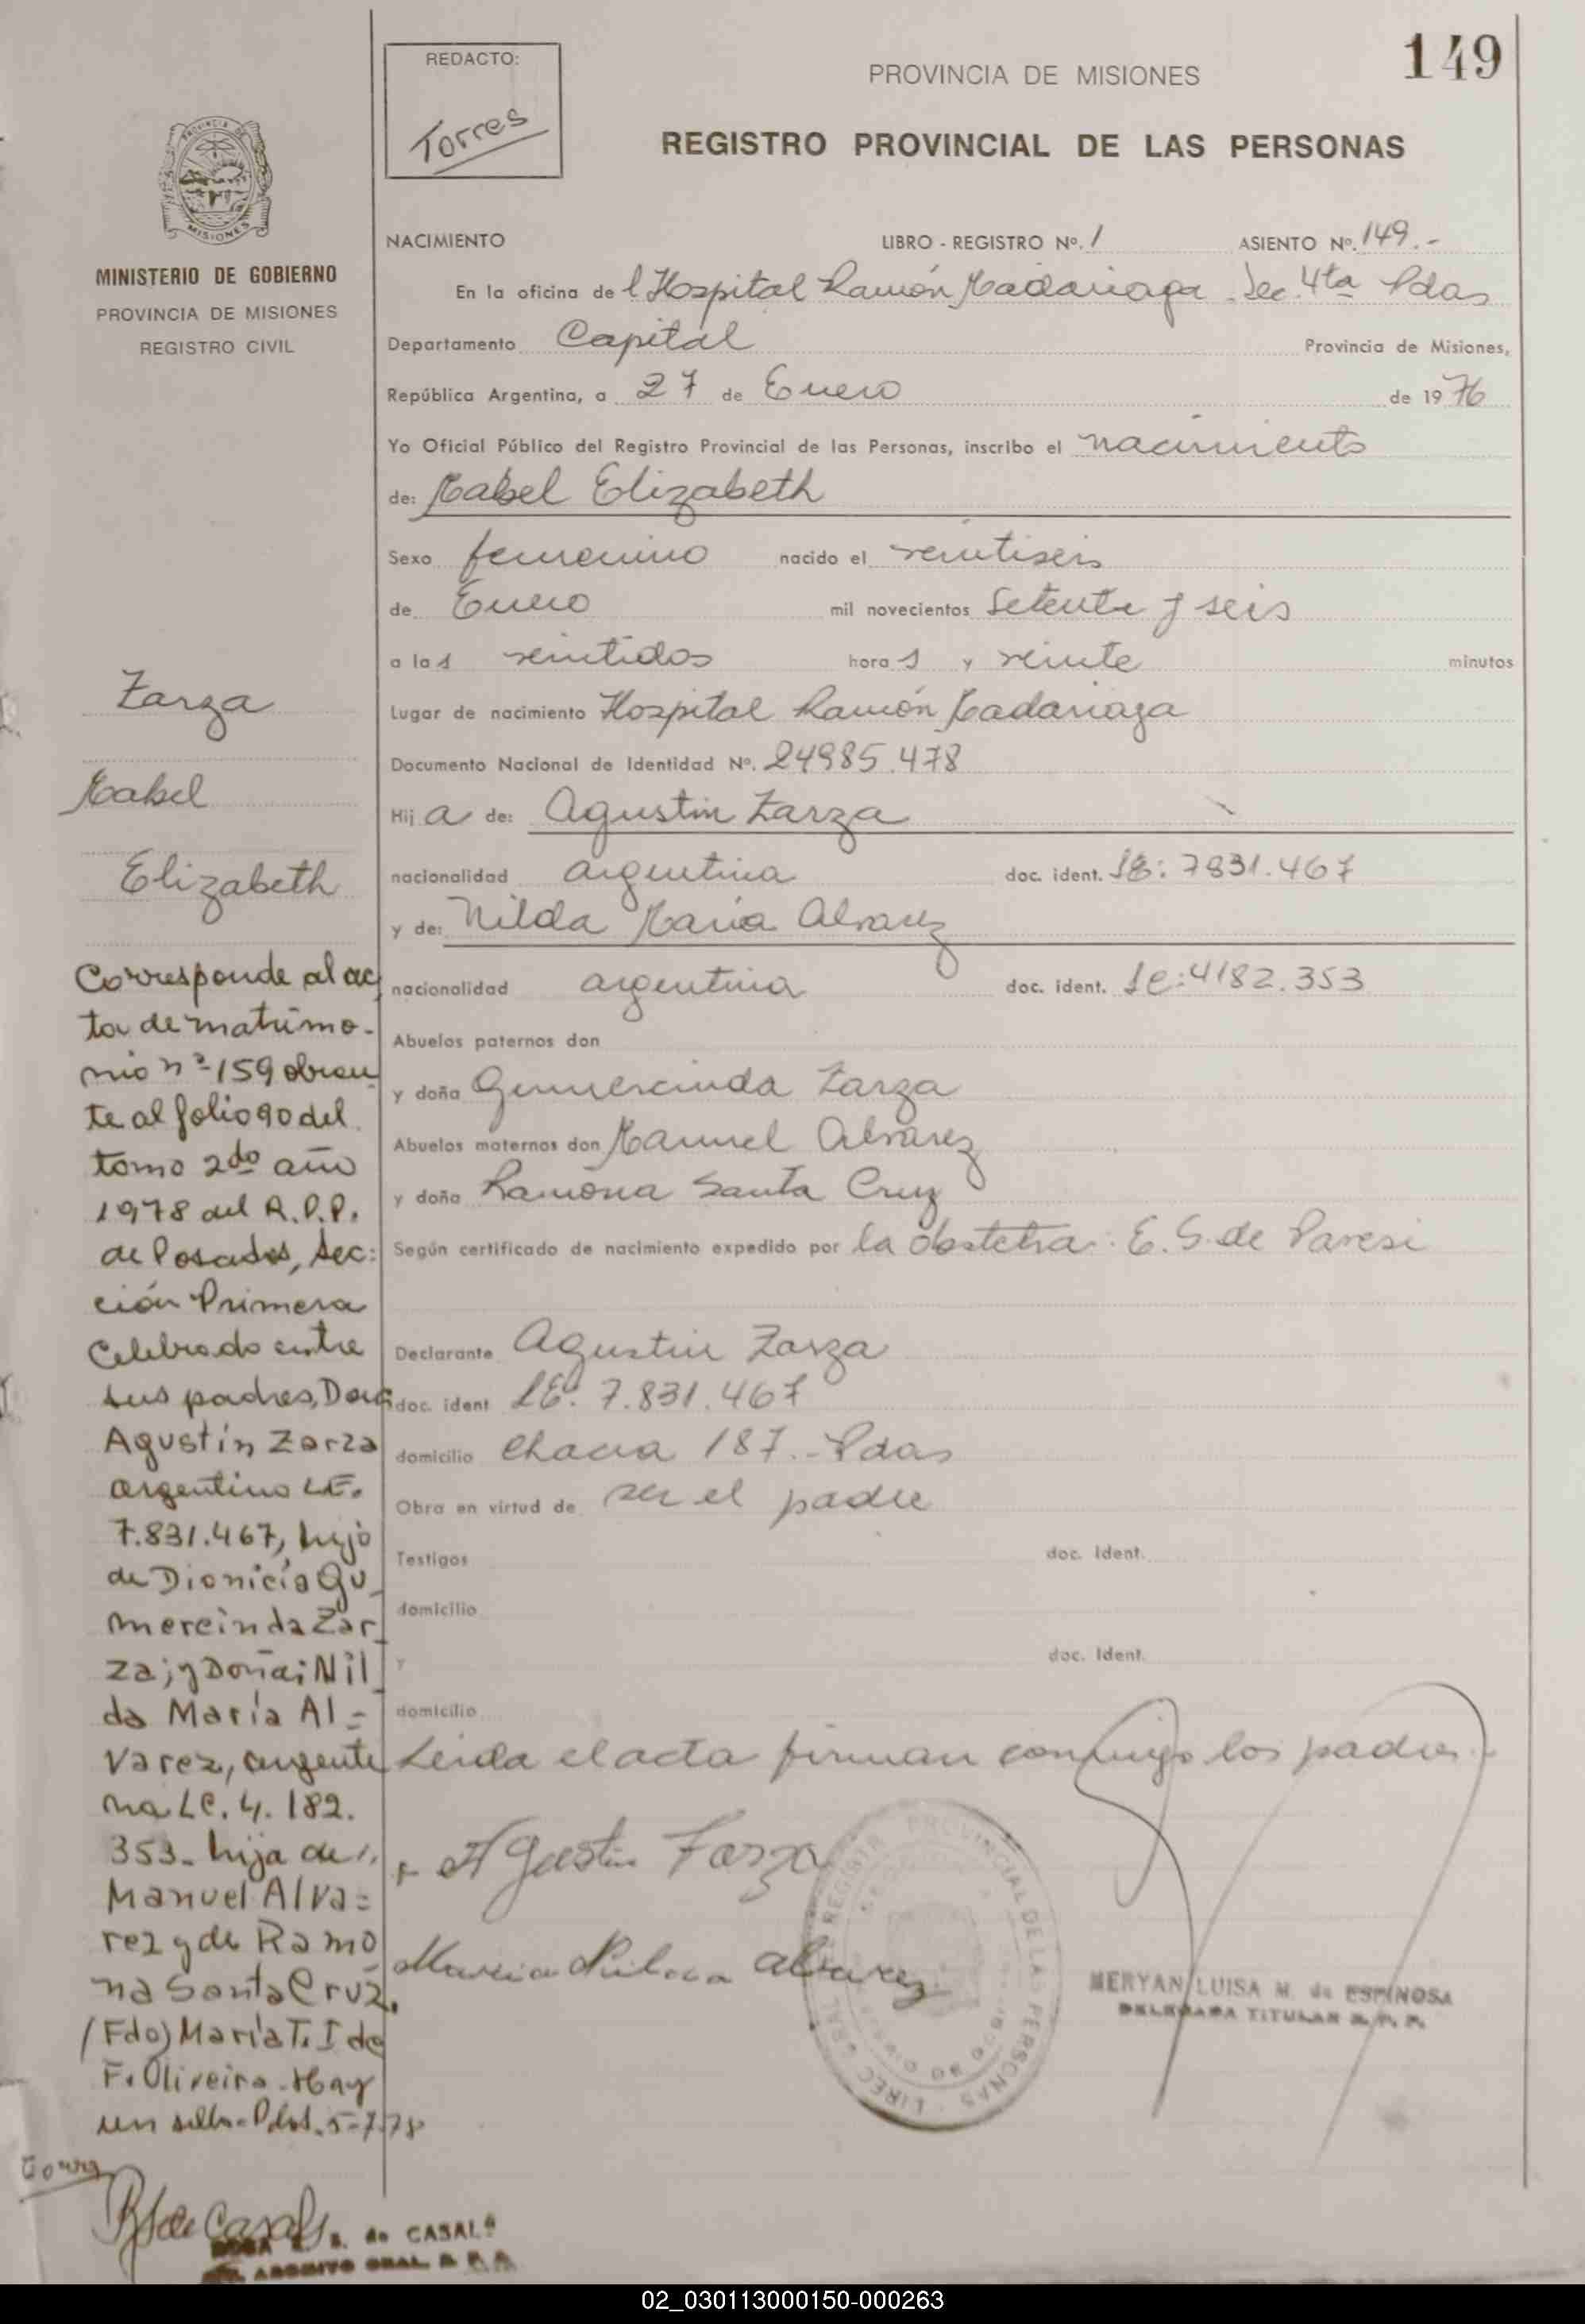 149
REDACTO:
Torres
PROVINCIA DE MISIONES
REGISTRO PROVINCIAL DE LAS PERSONAS
PROVINCIA DE MISIONES
MINISTERIO DE GOBIERNO
PROVINCIA DE MISIONES
REGISTRO CIVIL
NACIMIENTO LIBRO - REGISTRO Nº. 1 ASIENTO Nº. 149.-
En la oficina del Hospital Ramón Madariaga Sec. 4ta Pdas
Departamento Capital Provincia de Misiones,
República Argentina, a 27 de Enero de 1976
Yo Oficial Público del Registro Provincial de las Personas, inscribo el nacimiento
de: Mabel Elizabeth
Sexo femenino nacido el veintiseis
de Enero mil novecientos Setenta y seis
a las veintidos horas y veinte minutos
Lugar de nacimiento Hospital Ramón Madariaga
Documento Nacional de Identidad Nº. 24985.478
Hija de: Agustin Zarza
nacionalidad argentina doc. ident. LE: 7831.467
y de: Nilda Maria Alvarez
nacionalidad argentina doc. ident. Lc: 4182.353
Abuelos paternos don
y doña Gumercinda Zarza
Abuelos maternos don Manuel Alvarez
y doña Ramona Santa Cruz
Según certificado de nacimiento expedido por la obstetra: E. S. de Paresi
Declarante Agustin Zarza
doc. ident LE: 7.831.467
domicilio Chacra 187.- Pdas
Obra en virtud de ser el padre
Testigos doc. Ident.
domicilio
y doc. Ident.
domicilio
Leida el acta firman conmigo los padres.-
Agustin Zarza
Maria Alvarez
MERYAN LUISA M. de ESPINOSA
DELEGADA TITULAR R. P. P.
REGISTRO PROVINCIAL DE LAS PERSONAS
Zarza
Mabel
Elizabeth
Corresponde al ac
ta de matrimo-
nio nº 159 obran
te al folio 90 del
tomo 2do año
1978 del R.P.P.
de Posadas, Sec=
ción Primera
Celebrado entre
sus padres, Don
Agustín Zarza
argentino LE.
7.831.467, hijo
de Dionicia Gu_
mercinda Zar_
za; y Doña: Nil_
da María Al=
varez, argenti
na LC. 4.182.
353- hija de
Manuel Alva=
rez y de Ramo_
na Santa Cruz.
(Fdo) María T. I de
F. Oliveira - Hay
un sello - Pdas. 5-7-78
Torres
de CASALS
ARCHIVO GRAL. R. P. P.
02_030113000150-000263